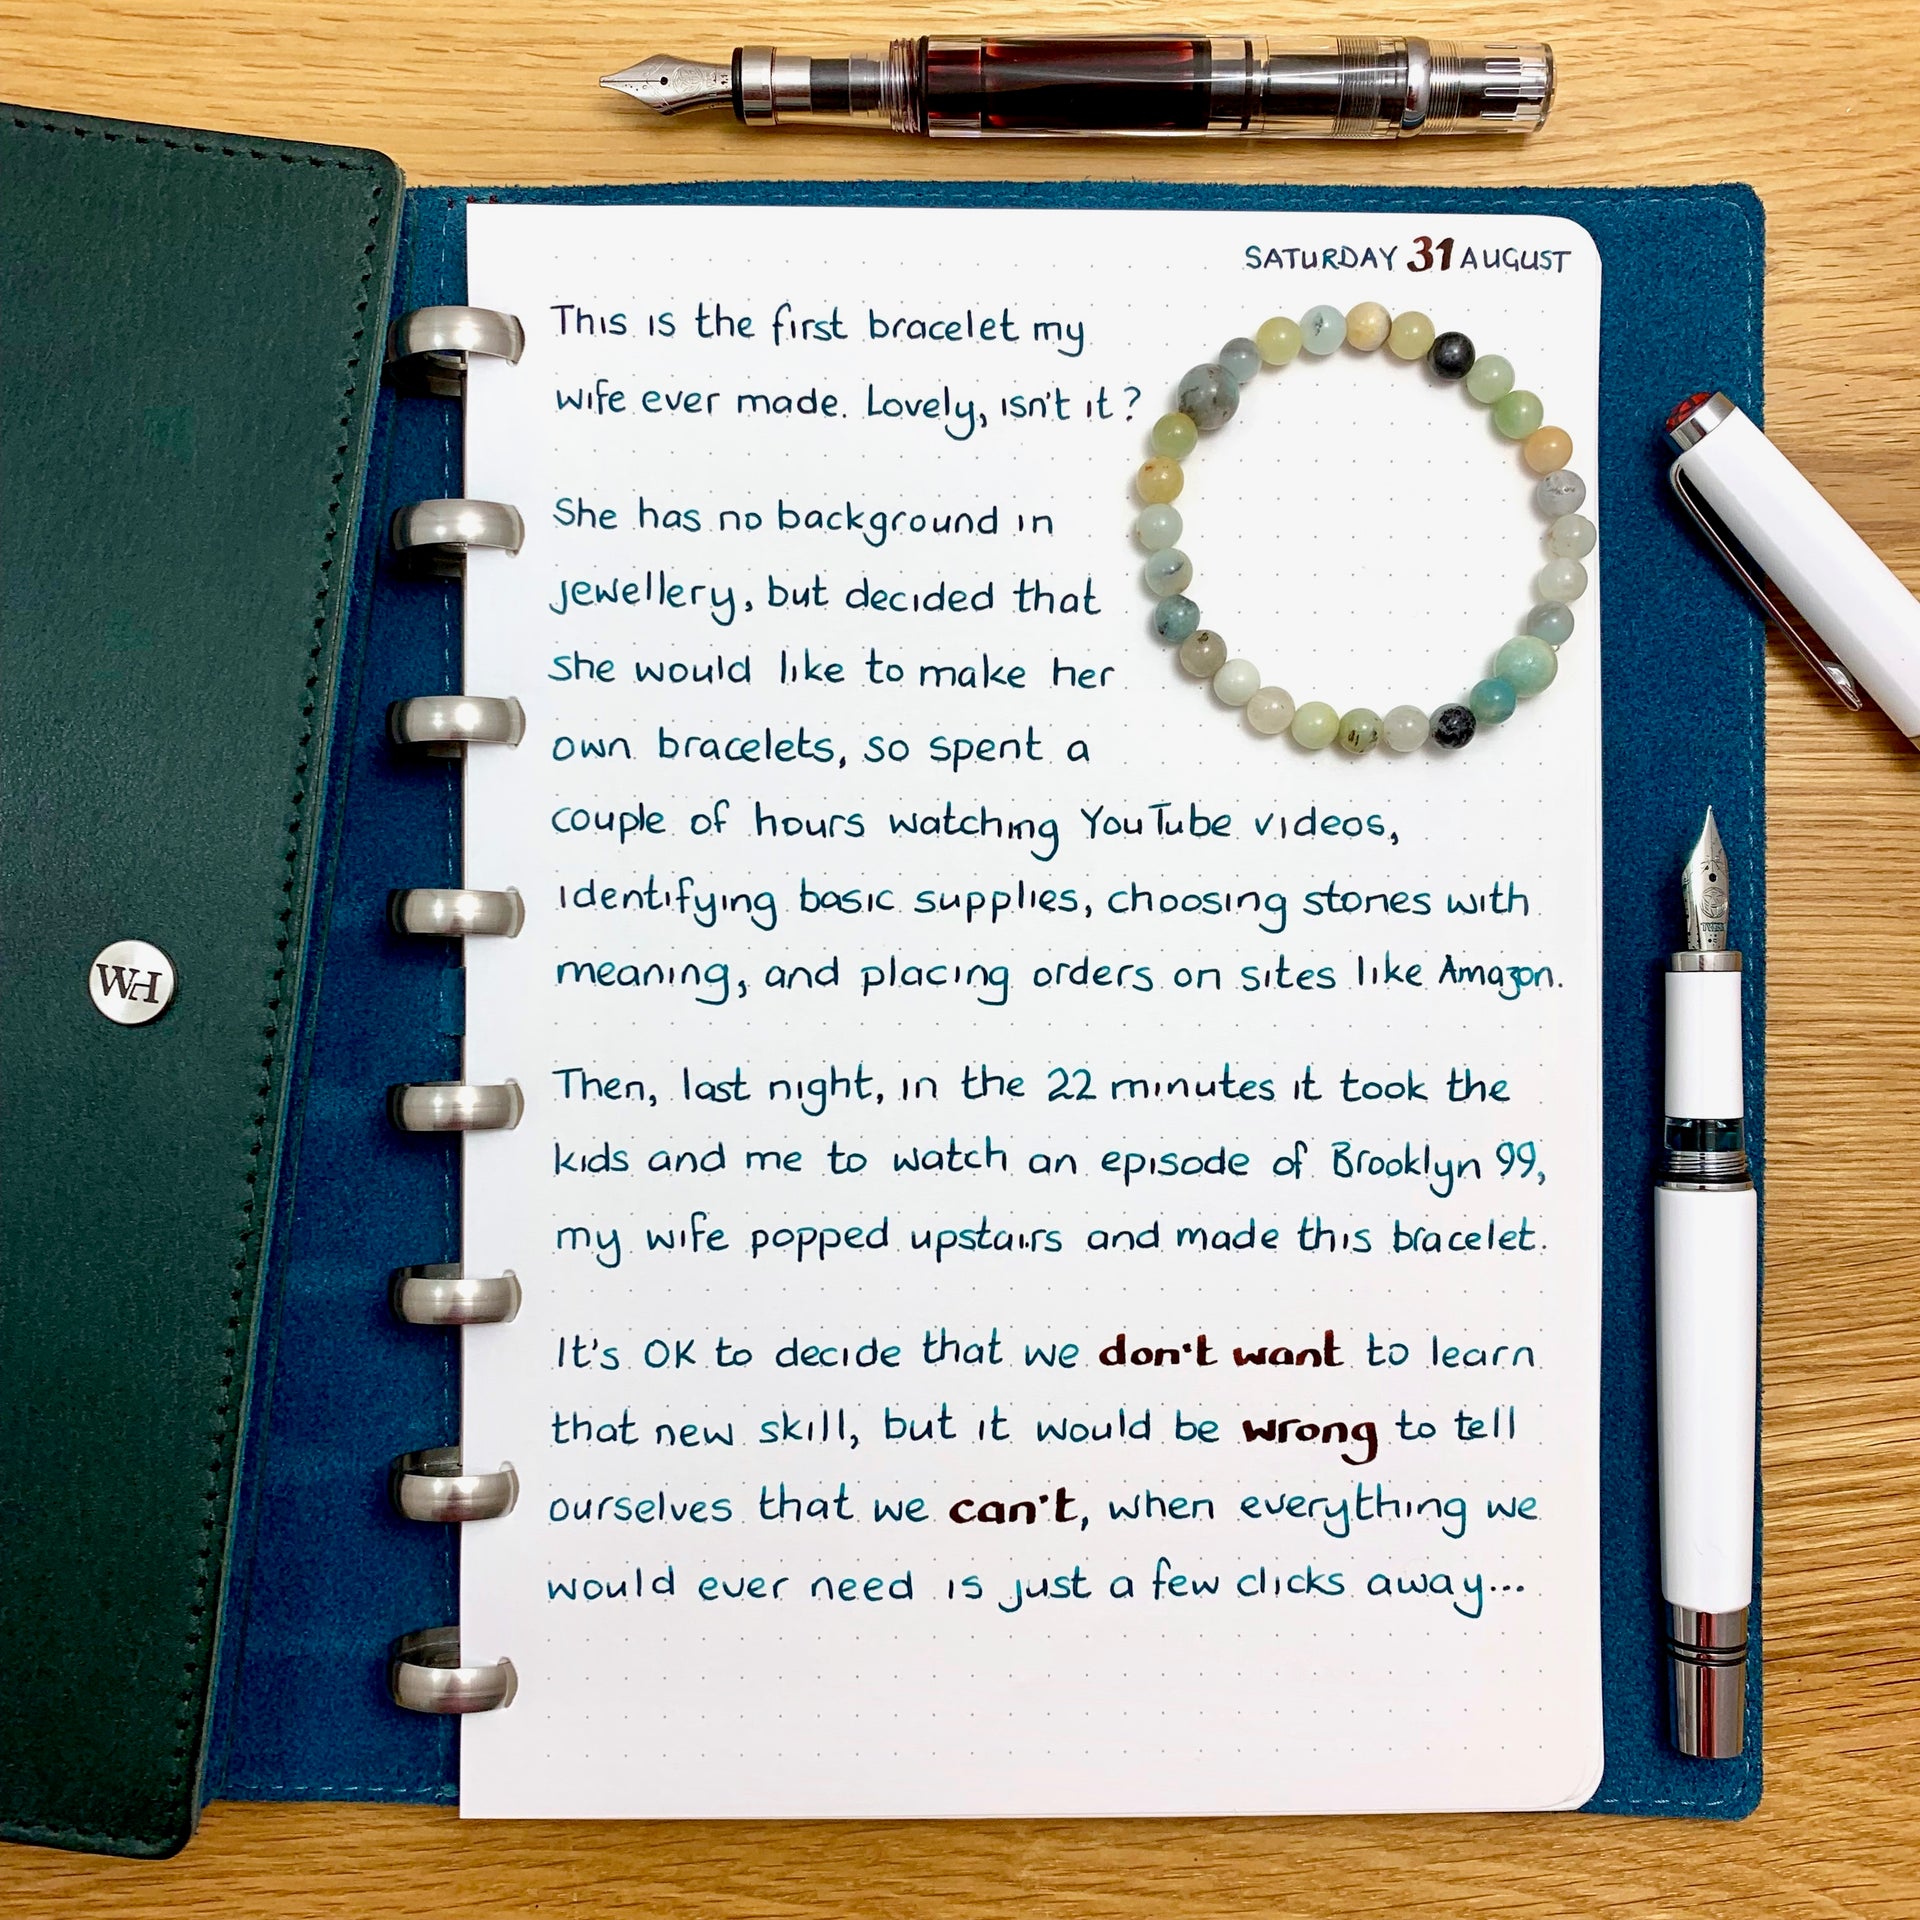 SATURDAY 31 AUGUST
This is the first bracelet my
wife ever made. Lovely, isn't it?
She has no background in
jewellery, but decided that
she would like to make her
own bracelets, so spent a
couple of hours watching YouTube videos,
identifying basic supplies, choosing stones with
meaning, and placing orders on sites like Amazon.
Then, last night, in the 22 minutes it took the
kids and me to watch an episode of Brooklyn 99,
my wife popped upstairs and made this bracelet.
It's OK to decide that we don't want to learn
that new skill, but it would be wrong to tell
ourselves that we can't, when everything we
would ever need is just a few clicks away...
WH